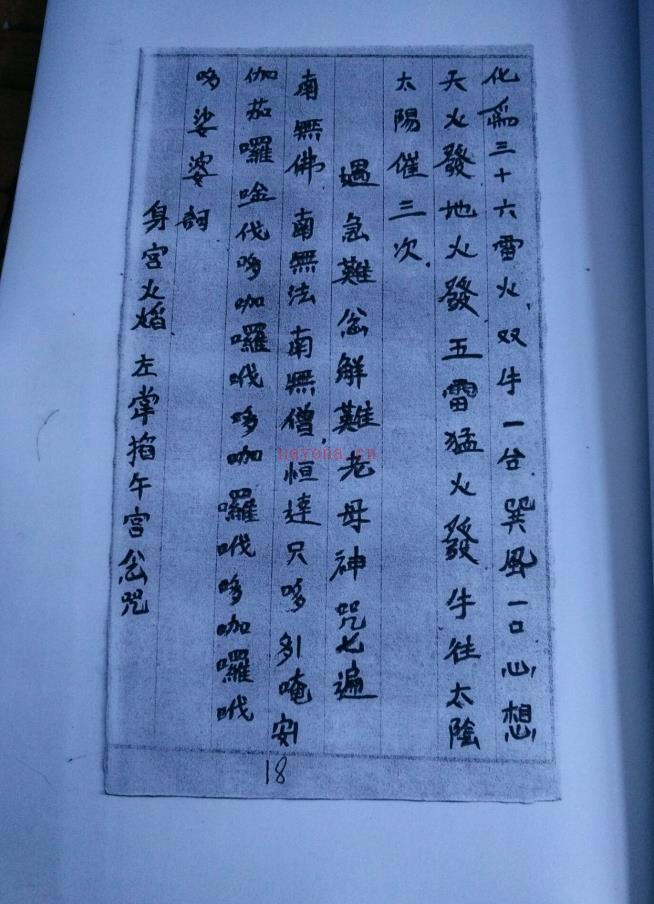 化為三十六雷火双牛一台巽風一口心想
天火發地火發五雷猛火發牛往太陰
太陽催三次
遇急難念解難老母神咒七遍
南無佛南無法南無僧恒達只哆多引唵安
伽茄囉唫伐哆咖囉哦哆咖囉哦哆咖囉哦
哆娑婆訶
身宮火焰左掌掐午宮念咒
18
nayona.cn